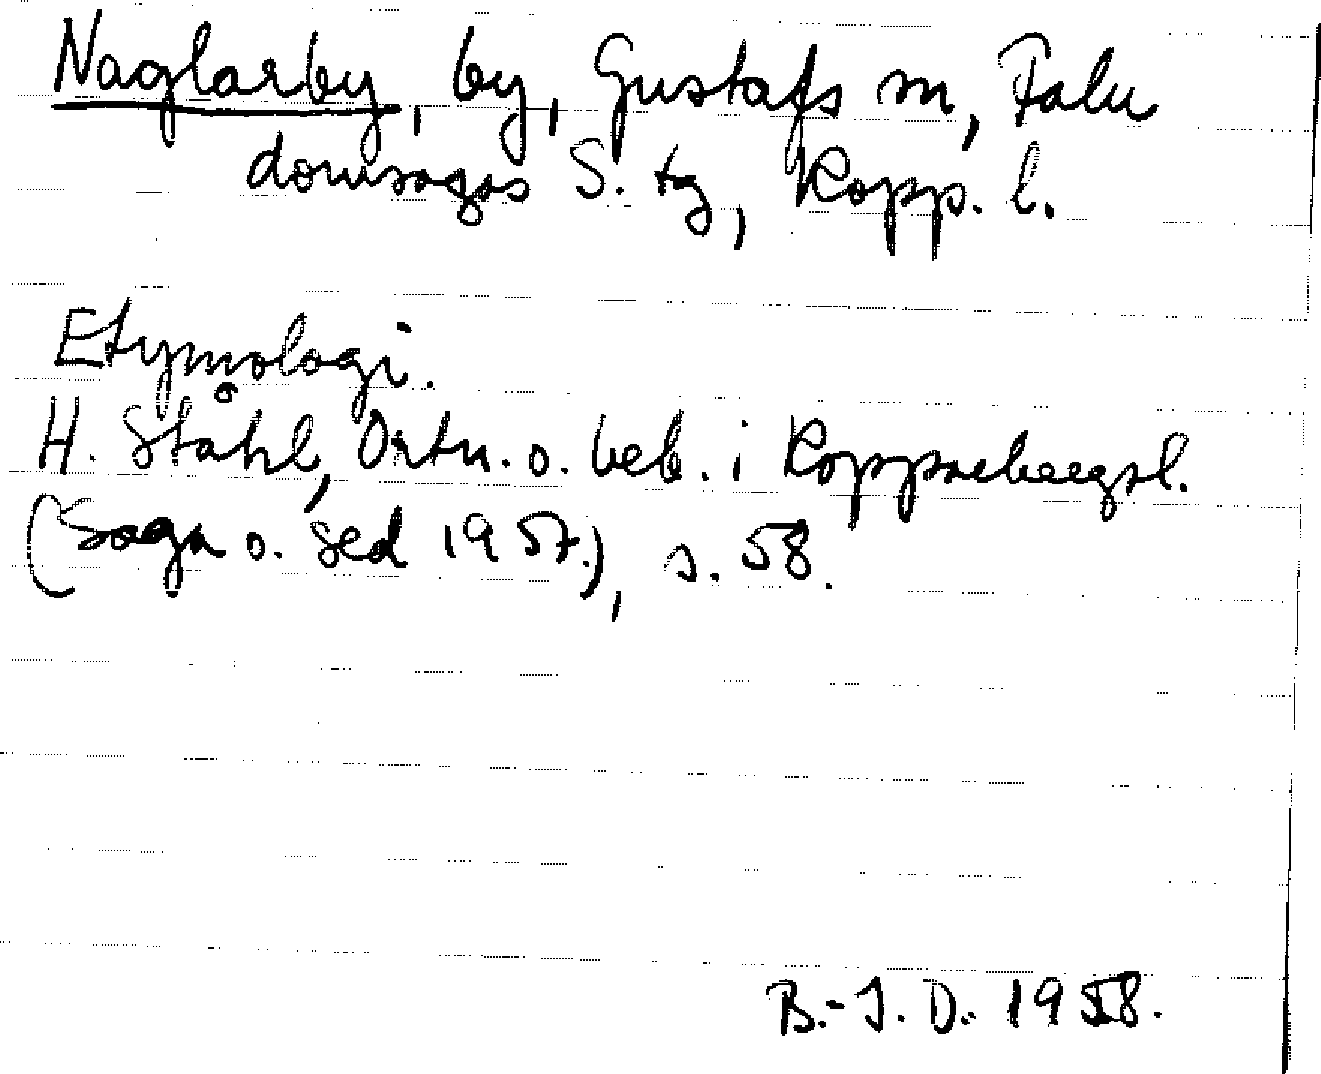 Naglarby, by, Gustafs sn, Falu
domsagas S. tg, Kopp. l.
Etymologi.
H. Ståhl, Ortn. o. beb. i Kopparbergsl.
(Saga o. sed 1957.), s. 58.
B.-J. D. 1958.